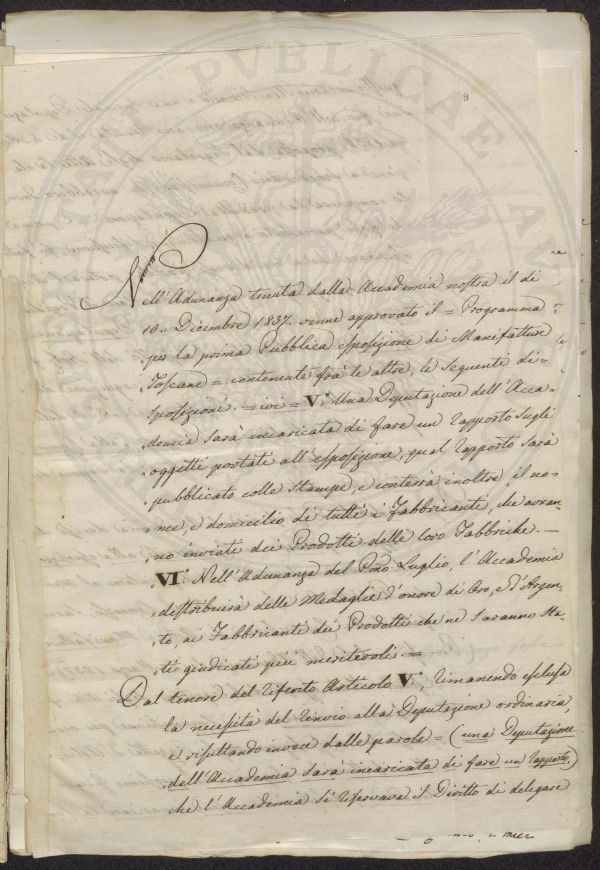 9
Nell'Adunanza tenuta dalla Accademia nostra il di
10.. Dicembre 1837. venne approvato il = Programma
per la prima Pubblica esposizione di Manifatture
Toscane = contenente frà le altre, le seguenti di=
sposizioni. = ivi = V.° Una Deputazione dell'Acca=
demia sarà incaricata di fare un rapporto sugli
oggetti portati all'esposizione, qual rapporto sarà
pubblicato colle stampe, e conterrà inoltre, il no=
me, e domicilio, di tutti i Fabbricanti, che avran=
no inviati dei Prodotti delle loro Fabbriche. —
VI.° Nell'Adunanza del Pmo Luglio, l'Accademia
distribuirà delle Medaglie d'onore di Oro, e d'Argen=
to, ai Fabbricanti dei Prodotti che ne saranno sta=
ti giudicati più meritevoli. =
Dal tenore del riferito Articolo V.°, rimanendo esclusa
la necessità del rinvio alla Deputazione ordinaria,
e risultando invece dalle parole = (una Deputazione
dell'Accademia sarà incaricata di fare un rapporto)
che l'Accademia si riservava il Diritto di delegare
PVBLICAE